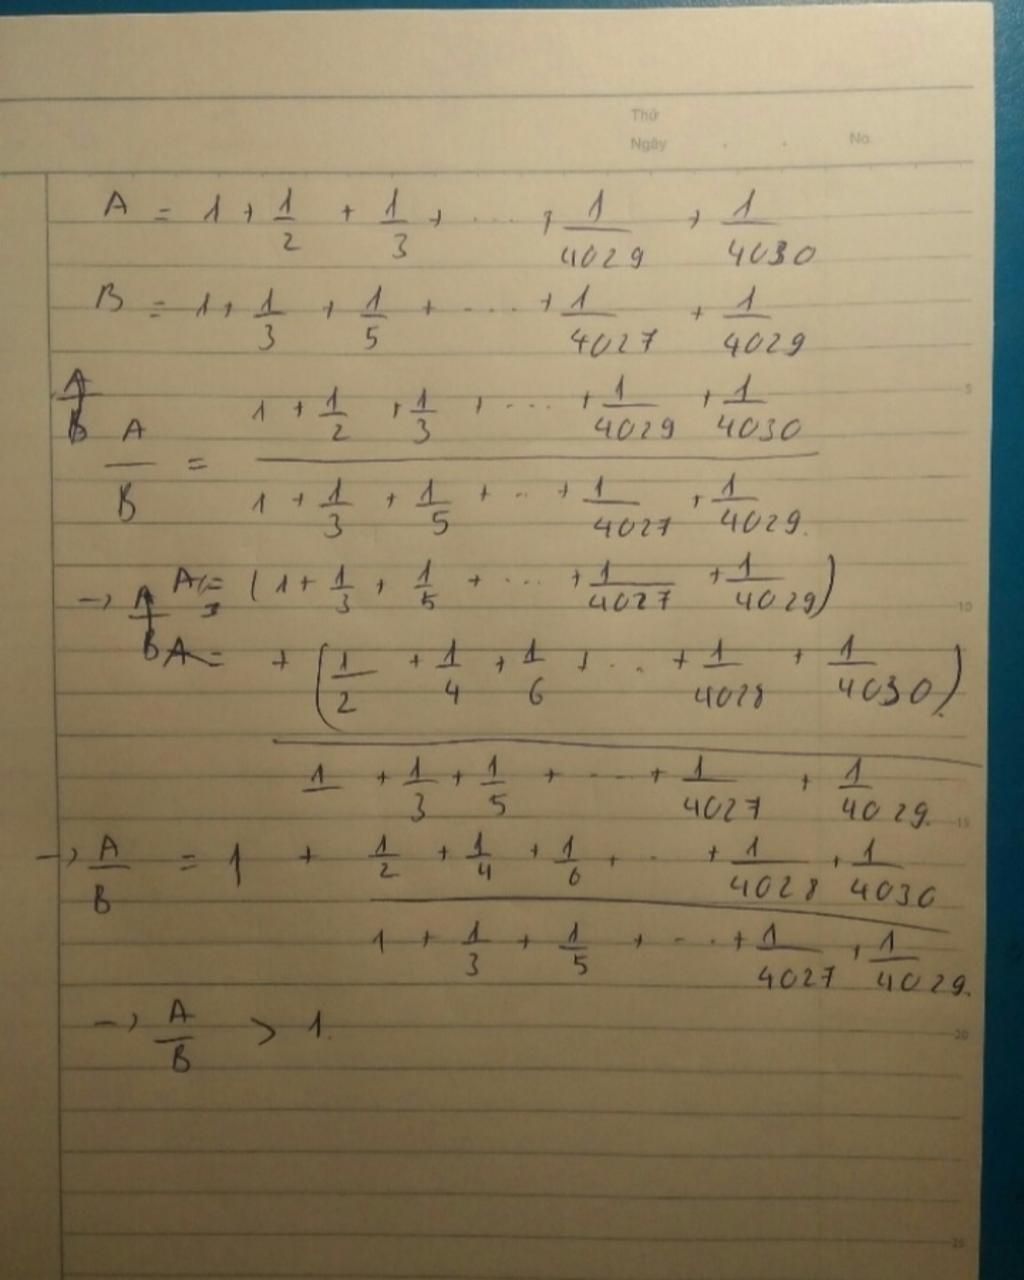 Thứ
Ngày . . No.
A = 1 + 1/2 + 1/3 + .... + 1/4029 + 1/4030
B = 1 + 1/3 + 1/5 + .... + 1/4027 + 1/4029
A/B
A/B = (1 + 1/2 + 1/3 + .... + 1/4029 + 1/4030) / (1 + 1/3 + 1/5 + ... + 1/4027 + 1/4029.)
5
→ A/B = (1 + 1/3 + 1/5 + ... + 1/4027 + 1/4029)
10
A = + (1/2 + 1/4 + 1/6 + ... + 1/4028 + 1/4030).
1 + 1/3 + 1/5 + .... + 1/4027 + 1/4029.
15
→ A/B = 1 + (1/2 + 1/4 + 1/6 + .. + 1/4028 + 1/4030) / (1 + 1/3 + 1/5 + .... + 1/4027 + 1/4029.)
→ A/B > 1.
20
25